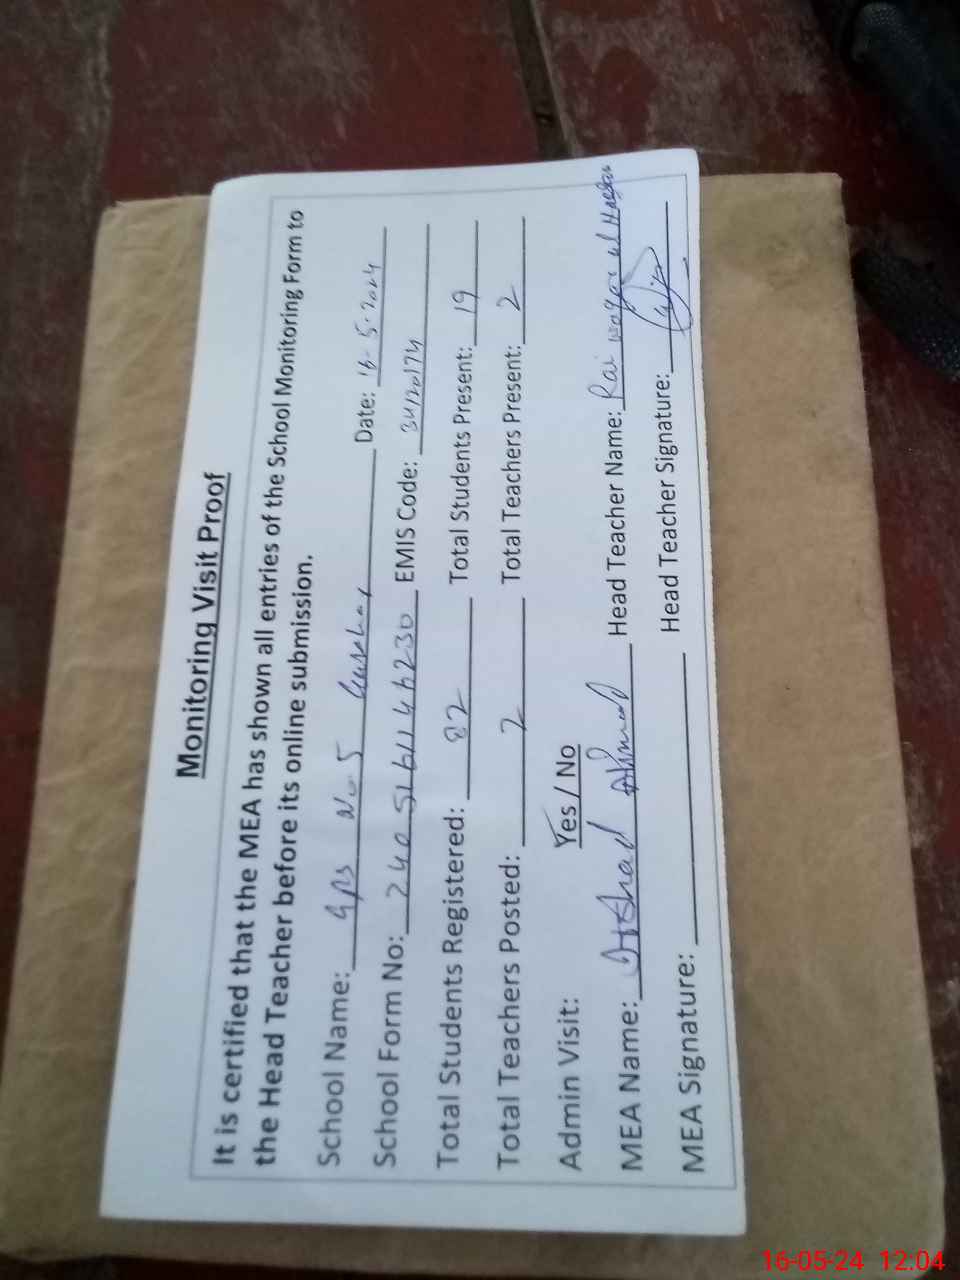 Monitoring Visit Proof
It is certified that the MEA has shown all entries of the School Monitoring Form to
the Head Teacher before its online submission.
School Name: GPS No 5 Date: 16-5-2024
School Form No: EMIS Code: 34120174
Total Students Registered: 82 Total Students Present: 19
Total Teachers Posted: 2 Total Teachers Present: 2
Admin Visit: Yes / No
MEA Name: Arshad Ahmad Head Teacher Name: Rai Waqar ul Hassan
MEA Signature: Head Teacher Signature:
16-05-24 12:04